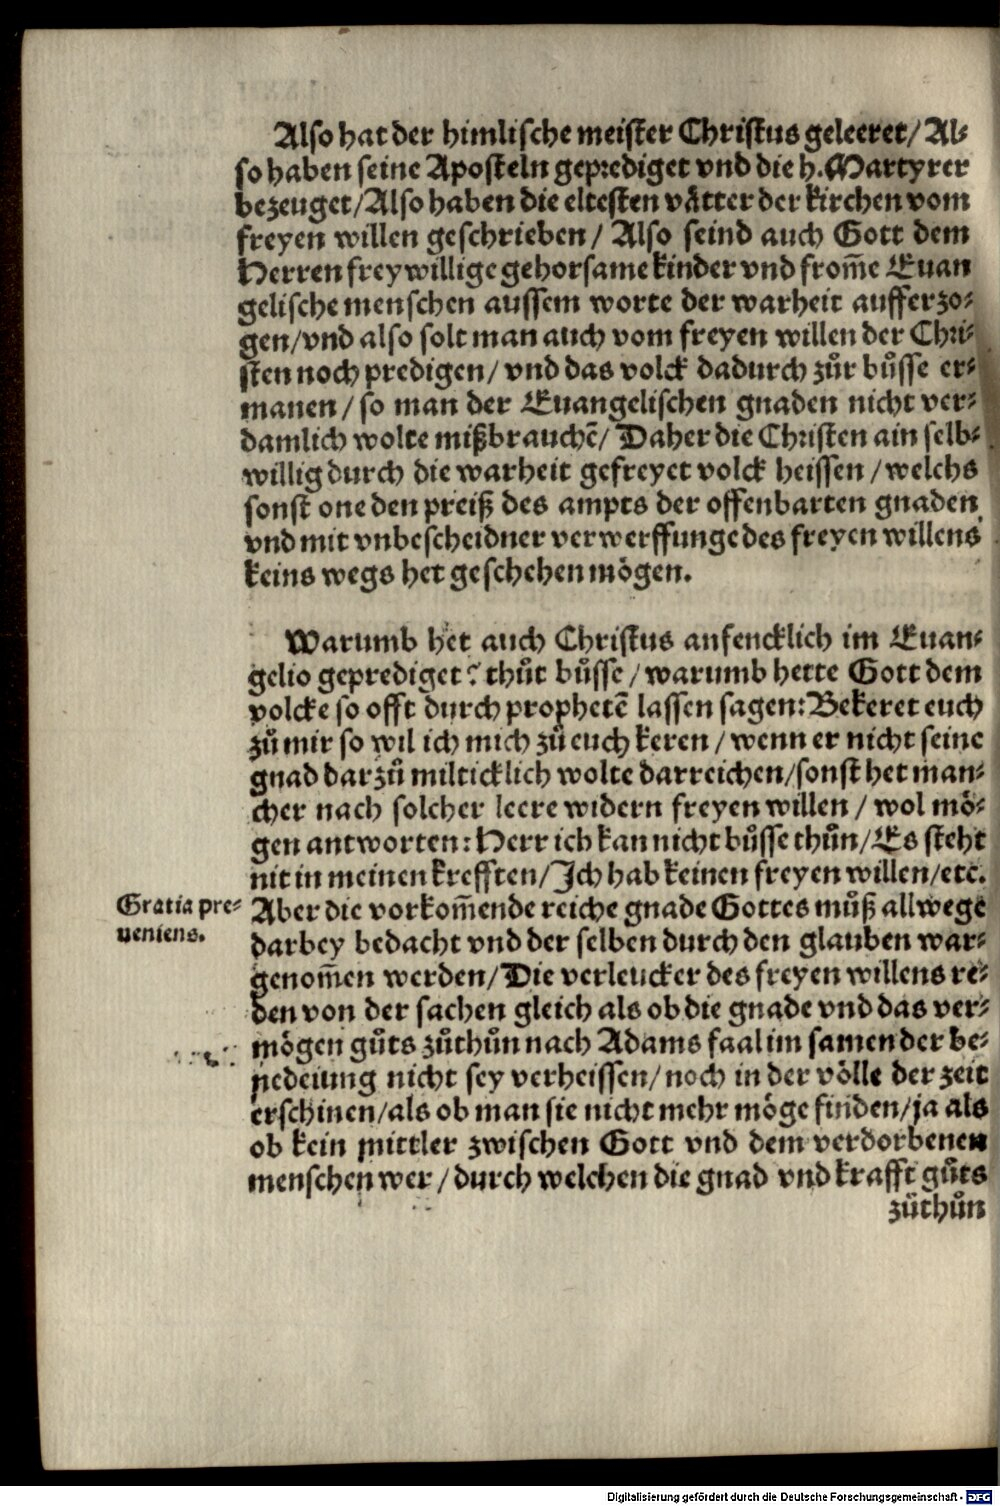 Also hat der himlische meister Christus geleeret/ Al-
so haben seine Aposteln geprediget vnd die h. Martyrer
bezeuget/ Also haben die eltesten vätter der kirchen vom
freyen willen geschrieben/ Also seind auch Gott dem
Herren freywillige gehorsame kinder vnd from̄e Euan
gelische menschen aussem worte der warheit aufferzo-
gen/ vnd also solt man auch vom freyen willen der Chri-
sten noch predigen/ vnd das volck dadurch zůr bůsse er-
manen/ so man der Euangelischen gnaden nicht ver-
damlich wolte mißbrauchē/ Daher die Christen ain selb-
willig durch die warheit gefreyet volck heissen/ welchs
sonst one den preiß des ampts der offenbarten gnaden
vnd mit vnbescheidner verwerffunge des freyen willens
keins wegs het geschehen mögen.
Warumb het auch Christus anfencklich im Euan-
gelio geprediget? thůt bůsse/ warumb hette Gott dem
volcke so offt durch prophetē lassen sagen: Bekeret euch
zů mir so wil ich mich zů euch keren/ wenn er nicht seine
gnad darzů milticklich wolte darreichen/ sonst het man-
cher nach solcher leere widern freyen willen/ wol mö-
gen antworten: Herr ich kan nicht bůsse thůn/ Es steht
nit in meinen krefften/ Ich hab keinen freyen willen/ etc.
Gratia pre-
ueniens.
Aber die vorkom̄ende reiche gnade Gottes můß allwege
darbey bedacht vnd der selben durch den glauben war-
genom̄en werden/ Die verleucker des freyen willens re-
den von der sachen gleich als ob die gnade vnd das ver-
mögen gůts zůthůn nach Adams faal im samen der be-
nedeiung nicht sey verheissen/ noch in der völle der zeit
erschinen/ als ob man sie nicht mehr möge finden/ ja als
ob kein mittler zwischen Gott vnd dem verdorbenen
menschen wer/ durch welchen die gnad vnd krafft gůts
zůthůn
Digitalisierung gefördert durch die Deutsche Forschungsgemeinschaft - DFG